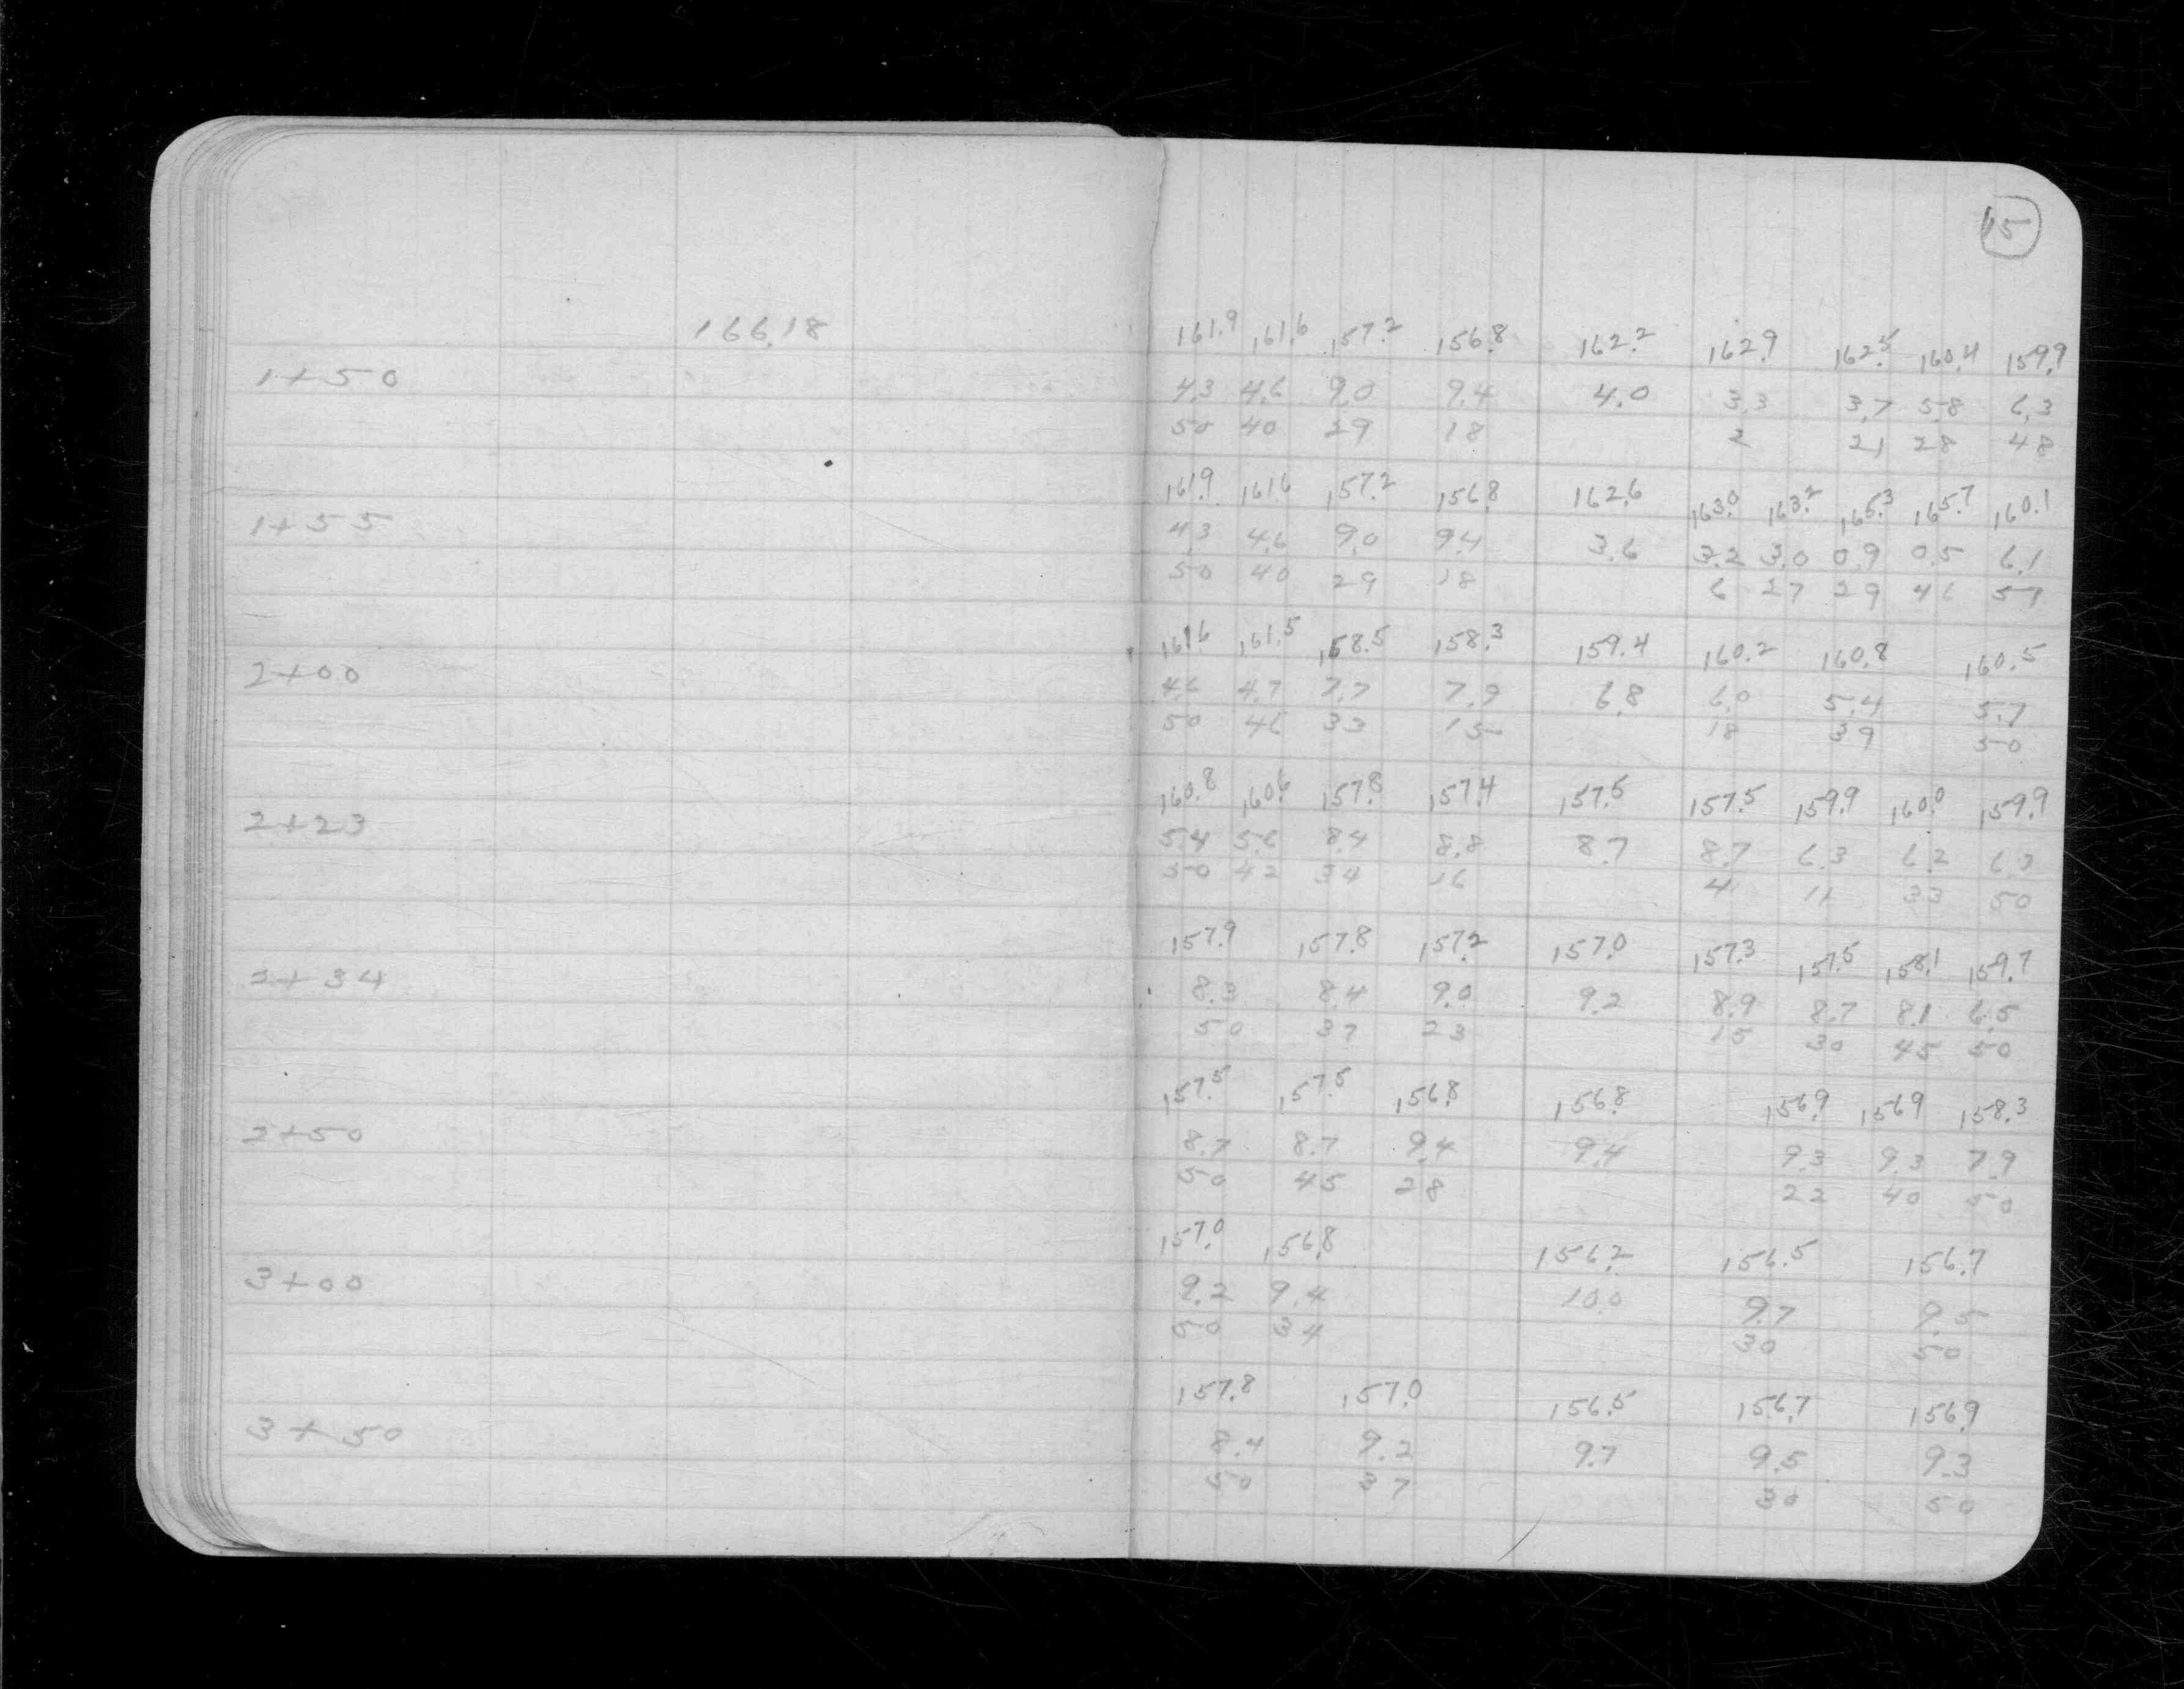 15
166.18
161.9 161.6 157.2 156.8 162.2 162.9 162.5 160.4 159.9
1+50 4.3 4.6 9.0 9.4 4.0 3.3 3.7 5.8 6.3
50 40 29 18 2 21 28 48
161.9 161.6 157.2 156.8 162.6 163.0 163.2 165.3 165.7 160.1
1+55 4.3 4.6 9.0 9.4 3.6 3.2 3.0 0.9 0.5 6.1
50 40 29 18 6 27 29 46 57
161.6 161.5 158.5 158.3 159.4 160.2 160.8 160.5
2+00 4.6 4.7 7.7 7.9 6.8 6.0 5.4 5.7
50 46 33 15 18 39 50
160.8 160.6 157.8 157.4 157.5 157.5 159.9 160.0 159.9
2+23 5.4 5.6 8.4 8.8 8.7 8.7 6.3 6.2 6.3
50 42 34 16 4 11 33 50
157.9 157.8 157.2 157.0 157.3 157.5 158.1 159.7
2+34 8.3 8.4 9.0 9.2 8.9 8.7 8.1 6.5
50 37 23 15 30 45 50
157.5 157.5 156.8 156.8 156.9 156.9 158.3
2+50 8.7 8.7 9.4 9.4 9.3 9.3 7.9
50 45 28 22 40 50
157.0 156.8 156.2 156.5 156.7
3+00 9.2 9.4 10.0 9.7 9.5
50 34 30 50
157.8 157.0 156.5 156.7 156.9
3+50 8.4 9.2 9.7 9.5 9.3
50 37 30 50